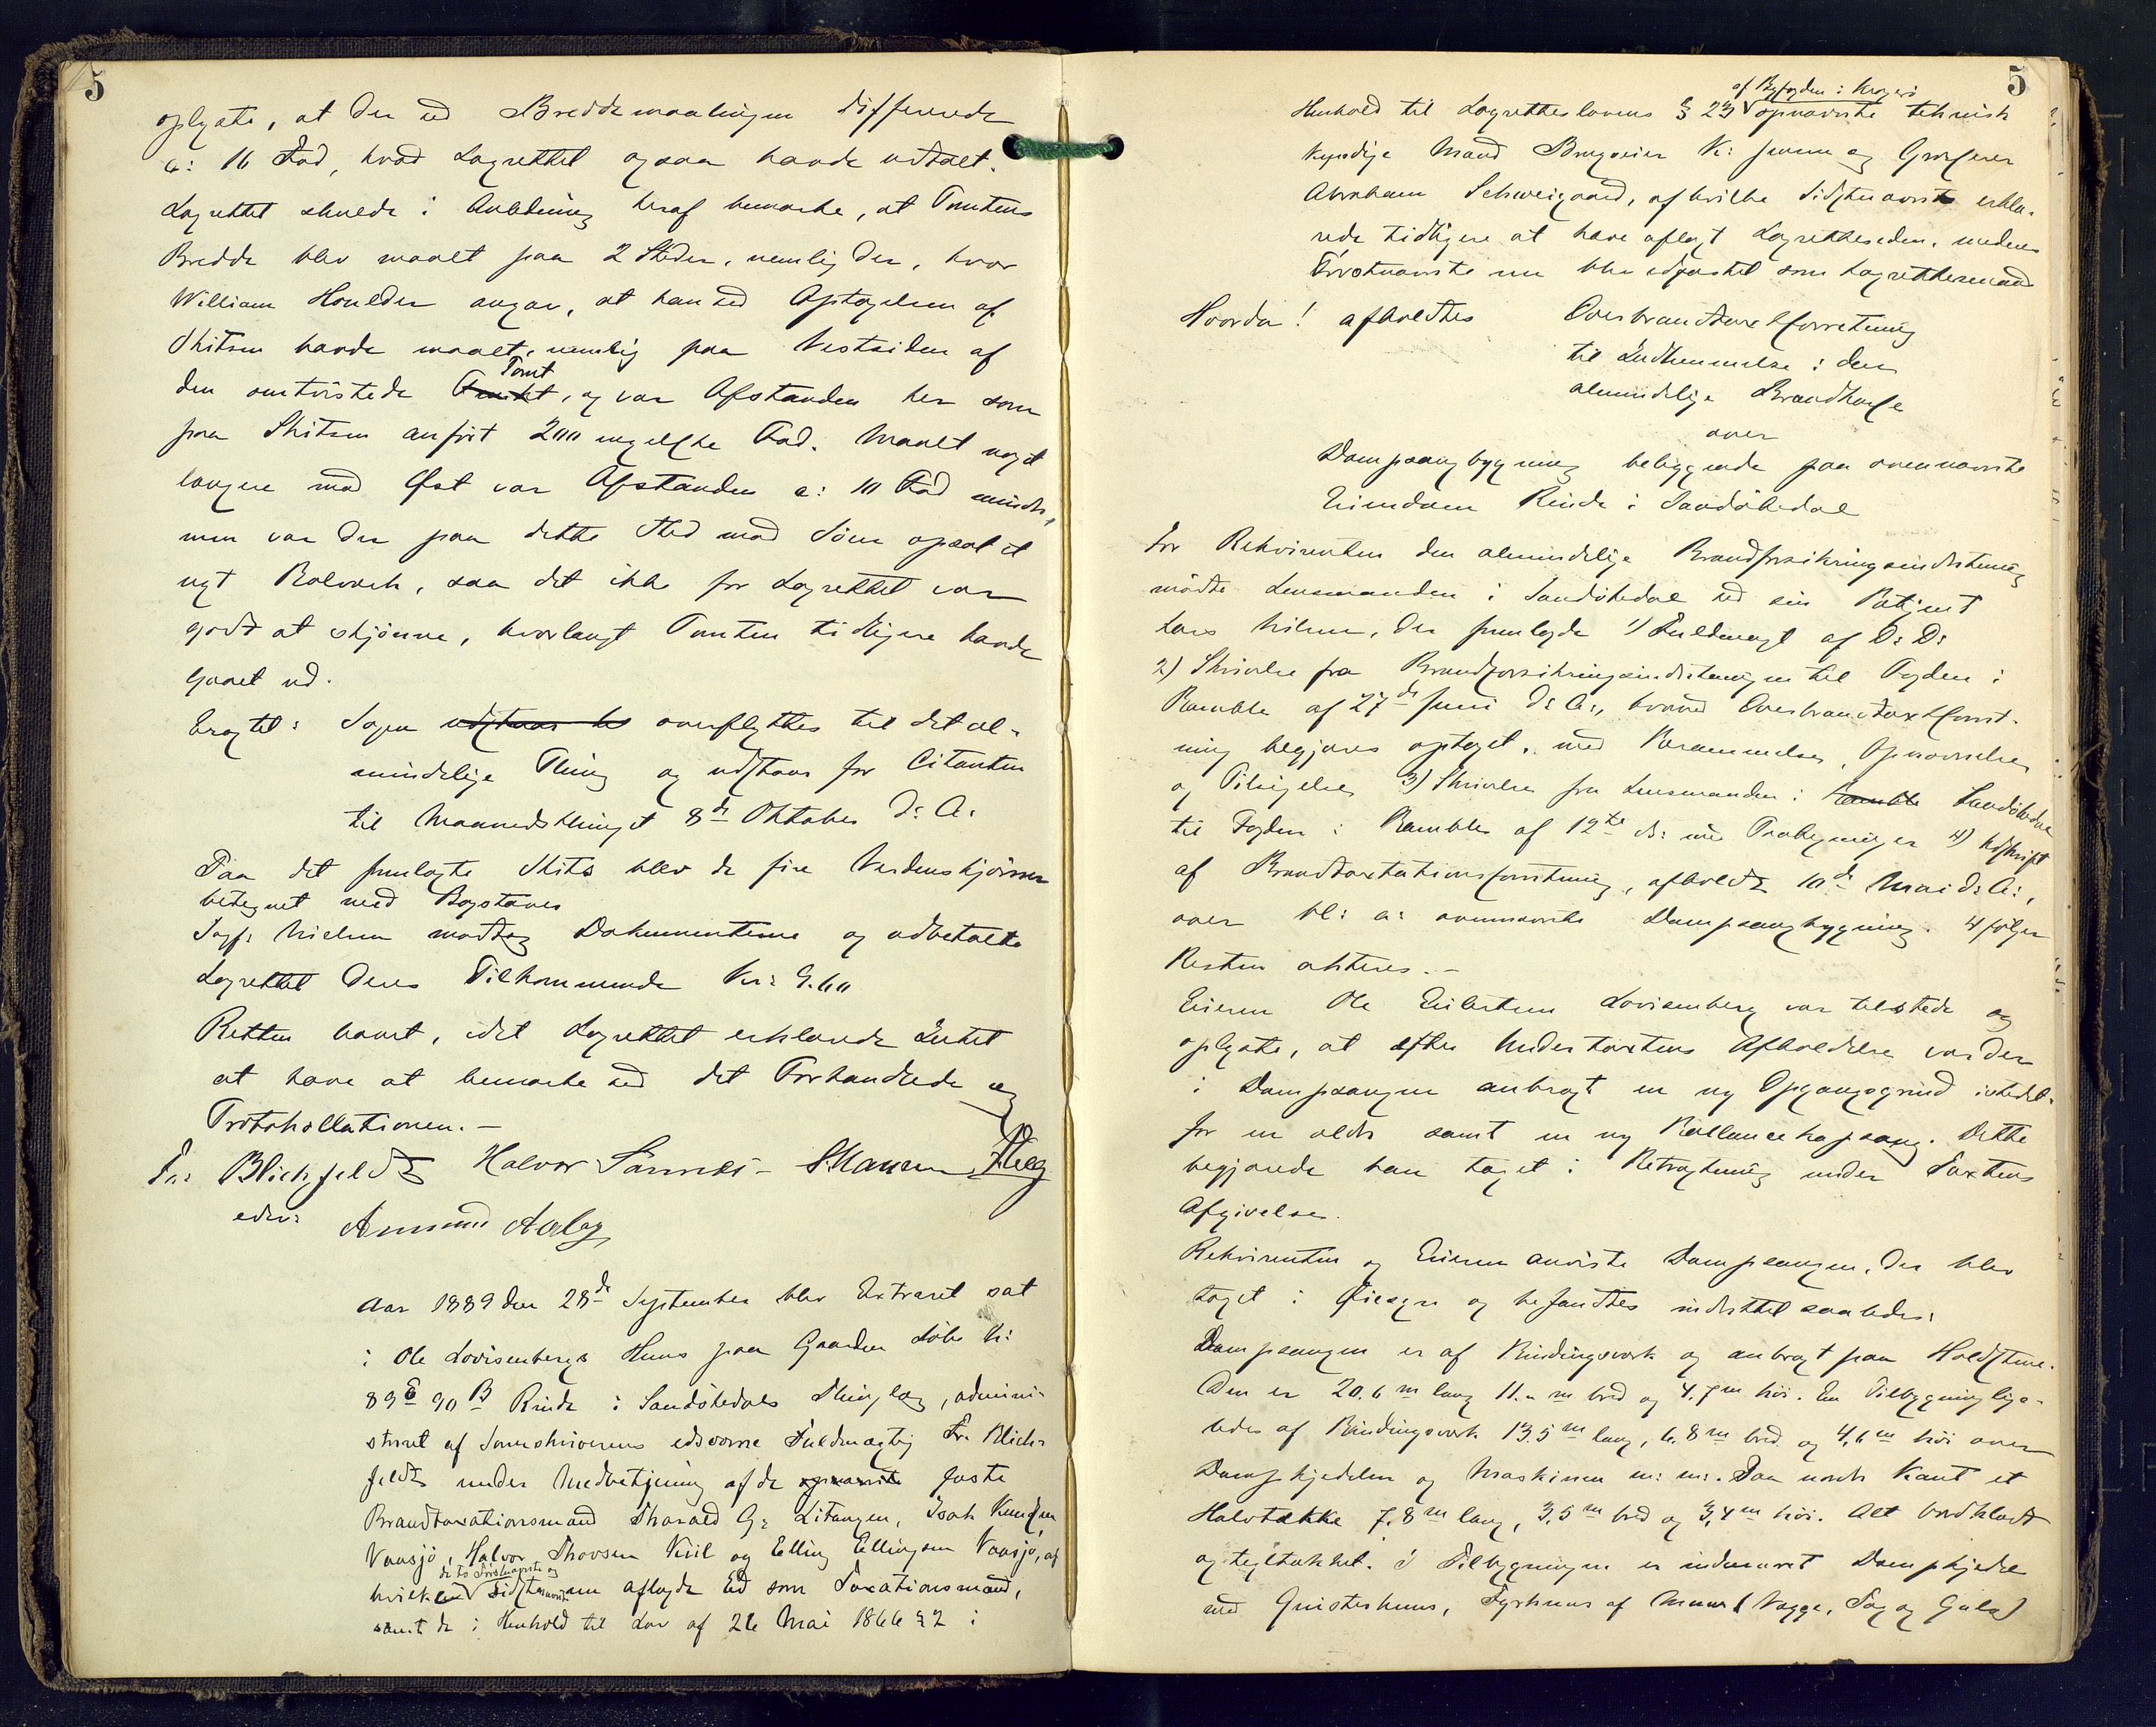 5
oplyste, at der ved Breddemaalingen differerede
c: 16 Fod, hvad Lagrettet ogsaa havde udtalt.
Lagrettet skulde i Anledning heraf bemærke, at Tomtens
Bredde blev maalt paa 2 Steder, nemlig der, hvor
William Houlder angav, at han ved Optagelsen af
Skitsen havde maalt, nemlig paa Vestsiden af
den omtvistede Tomt, og var Afstanden her som
paa Skitsen anført 200 engelske Fod. Maalt noget
længere mod Øst var Afstanden c: 10 Fod mindre,
men var der paa dette Sted mod Søen opsat et
nyt Bolværk, saa det ikke for Lagrettet var
godt at skjønne, hvorlangt Tomten tidligere havde
gaaet ud.
Eragtet: Sagen udstaar til overflyttes til det al-
mindelige Thing og udstaar for Citanten
til Maanedsthinget 8de Oktober d: A:
Paa det fremlagte Skits blev de fire Verdenshjørner
betegnet med Bogstaver
Sagf: Nielsen modtog Dokumenterne og udbetalte
Lagrettet Deres Tilkommende Kr: 9.60
Retten hævet, idet Lagrettet erklærede Intet
at have at bemærke ved det Forhandlede og
Protokollationen.-
Fr: Blichfeldt Halvor Sannes - S. Hansen Heg
edsv: Amund Aasby
Aar 1889 den 28de September blev Extraret sat
i Ole Lovisenbergs Huus paa Gaarden Løbe N:
89 E 90 B Rinde i Sandøkedals Thinglag, admini-
streret af Sorenskriverens edsvorne Fuldmægtig Fr. Blich-
feldt under Medbetjening af de opnævnte faste
Brandtaxationsmænd Tharald G: Litangen, Isak Knudsen
Vaasjø, Halvor Thovsen Kiil og Elling Ellingsen Vaasjø, af
de to Førstnævnte og
hvilke Sidstnævnte nu aflagde Ed som Taxationsmænd,
samt de i Henhold til Lov af 26 Mai 1866 § 2 i
5
af Byfogden i Kragerø
Henhold til Lagretteslovens § 23 opnævnte teknisk
kyndige Mænd Brugseier K: Jensen og Grosserer
Abraham Schweigaard, af hvilke Sidstnævnte erklæ-
rede tidligere at have aflagt Lagretteseden, medens
Førstnævnte nu blev edfæstet som Lagrettesmand
Hvorda! afholdtes Overbrandtaxtforretning
til Indlemmelse i den
almindelige Brandkasse
over
Dampsaugbygning beliggende paa ovennævnte
Eiendom Rinde i Sandøkedal
For Rekvirenten den almindelige Brandforsikringsindretning
mødte Lensmanden i Sandøkedal ved sin Betjent
Lars Nilsen, der fremlagde 1) Fuldmagt af D: D:
2) Skrivelse fra Brandforsikringsindretningen til Fogden i
Bamble af 27de Juni d: A:, hvorved Overbrandtaxtforret-
ning begjæres optaget, med Berammelse, Opnævnelse
og Tilsigelse 3) Skrivelse fra Lensmanden i Bamble Sandøkedal
til Fogden i Bamble af 12te ds: med Paategninger 4) Udskrift
af Brandtaxtationsforretning, afholdt 10de Mai d: A:,
over bl: a: ovennævnte Dampsaugbygning. 4 følger
Resten akteres.-
Eieren Ole Eilertsen Lovisenberg var tilstede og
oplyste, at efter Undertaxtens Afholdelse var der
i Dampsaugen anbragt en ny Opgangsgrind istedet-
for en ældre samt en ny Ballancekapsaug. Dette
begjærede han taget i Betragtning under Taxtens
Afgivelse.
Rekvirenten og Eieren anviste Dampsaugen, der blev
taget i Øiesyn og befandtes indrettet saaledes:
Dampsaugen er af Bindingsværk og anbragt paa Holdstene.
Den er 20.6 m lang 11.0 m bred og 4.7 m høi. En Tilbygning lige-
ledes af Bindingsværk 13.5 m lang, 6.8 m bred og 4,6 m høi over
Dampkjedelen og Maskinen m: m:. Paa nordre Kant et
Halvtække 7.8 m lang, 3,5 m bred og 3,4 m høi. Alt bordklædt
og tegltækket. I Tilbygningen er indmuret Dampkjedel
med Gnisterhuus, Fyrhuus af Muur (Vægge, Tag og Gulv)